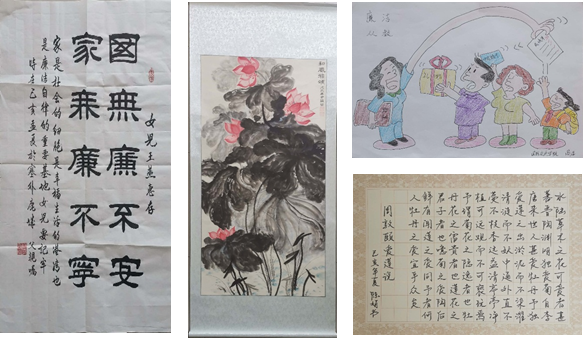 女兒王燕惠存
國無廉不安
家無廉不寧
家是社会的细胞是幸福生活的港湾也
是廉洁自律的重要基地女兒要记牢
时在己亥孟夏於塞外鹿城
廉洁
从教
水陆草木之花可爱者甚
蕃晋陶渊明独爱菊自李
唐来世人甚爱牡丹予独
爱莲之出淤泥而不染濯
清涟而不妖中通外直不
蔓不枝香远益清亭亭净
植可远观而不可亵玩焉
予谓菊花之隐逸者也牡
丹花之富贵者也莲花之
君子者也噫菊之爱陶后
鲜有闻莲之爱同予者何
人牡丹之爱宜乎众矣
周敦颐爱莲说
己亥年夏